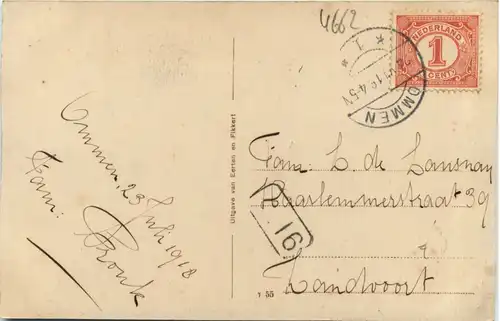 4662
NEDERLAND
1
CENT
OMMEN
1
4-5N
Ommen, 23 Juli 1918
Fam:
Pronk
Uitgave van Eerten en Fikkert
Fam: L. de
Haarlemmerstraat 39
16
Zandvoort
55